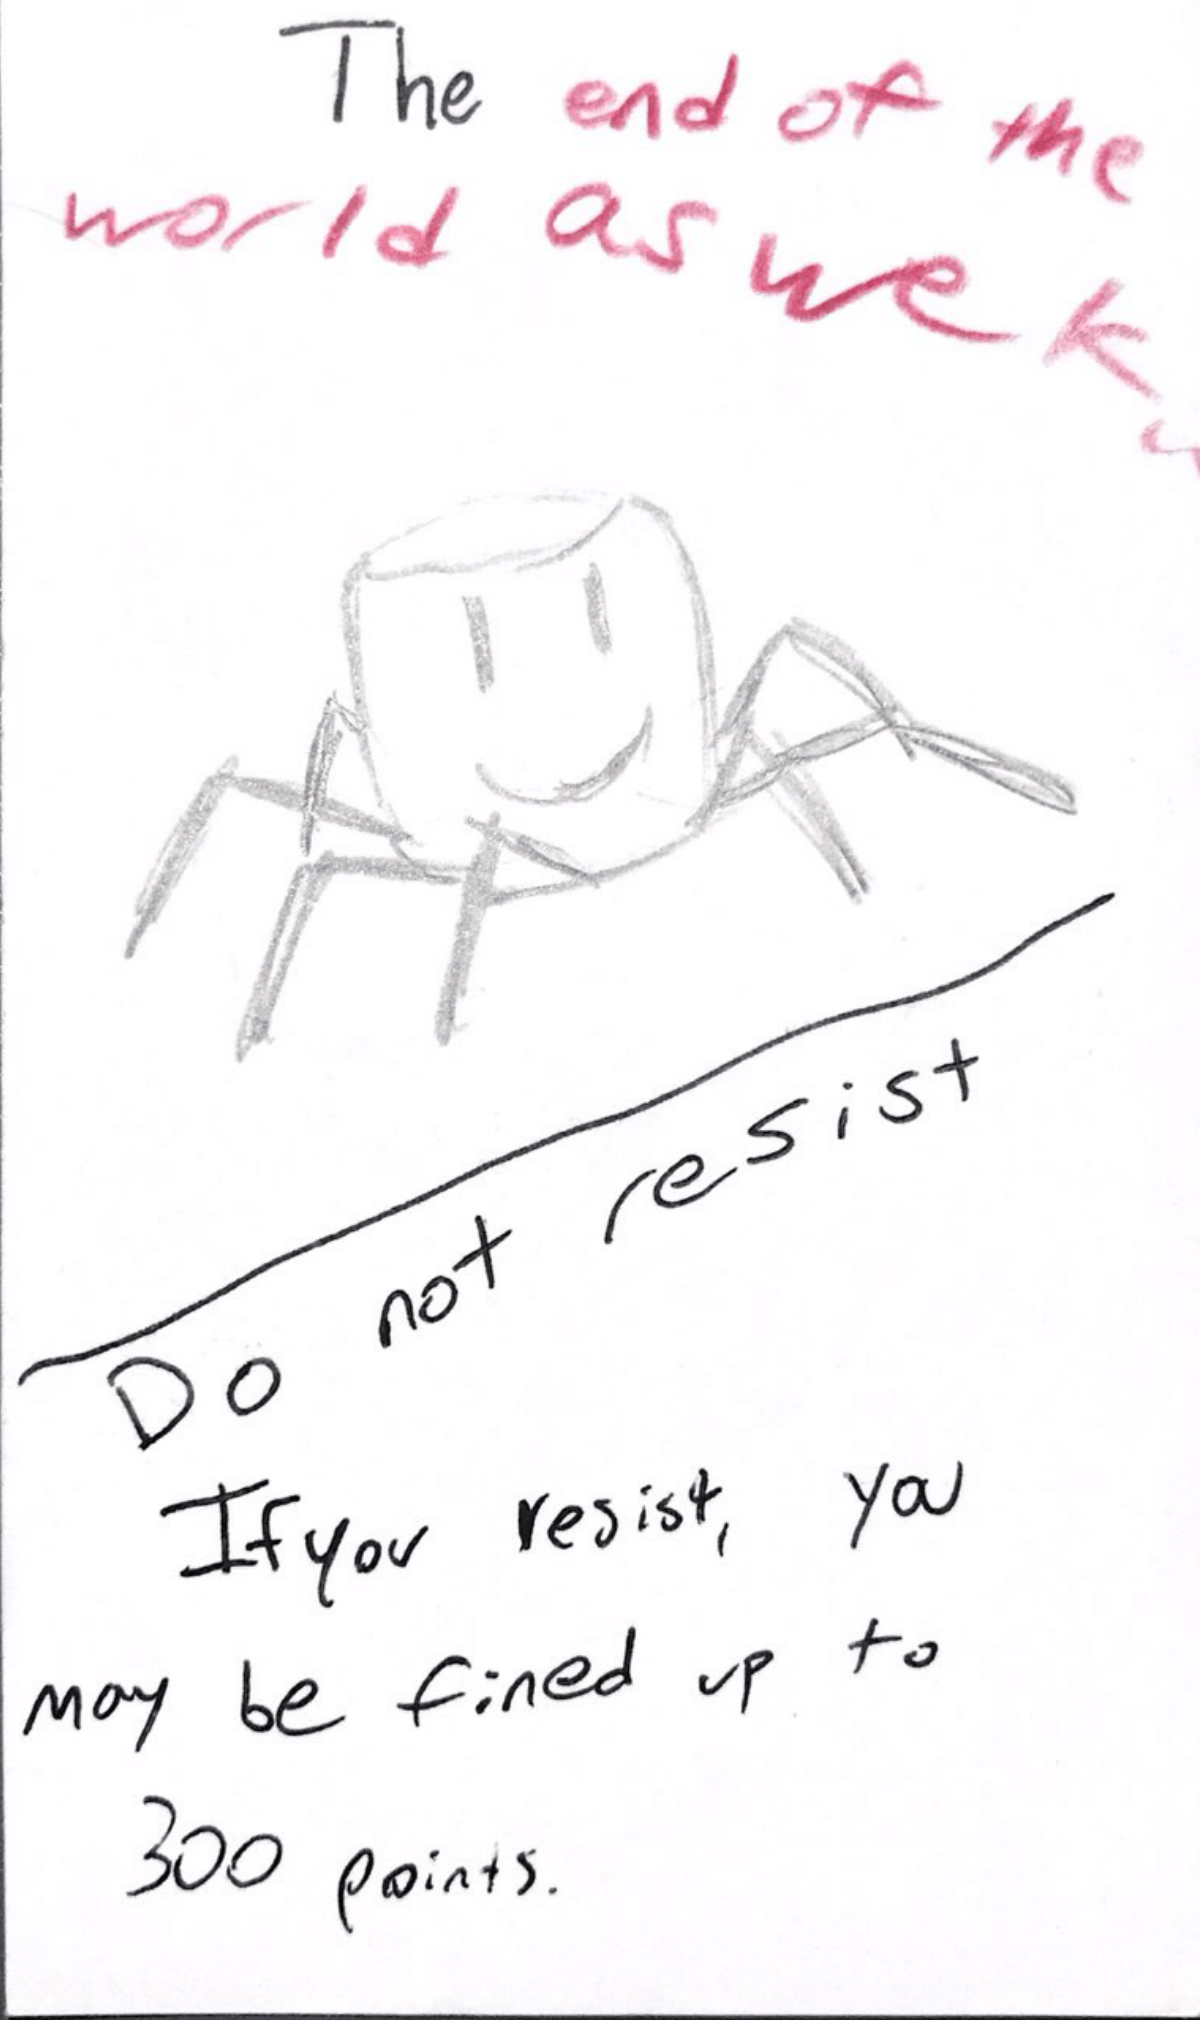 The end of the
world as we k
Do not resist
If you resist, you
may be fined up to
300 points.